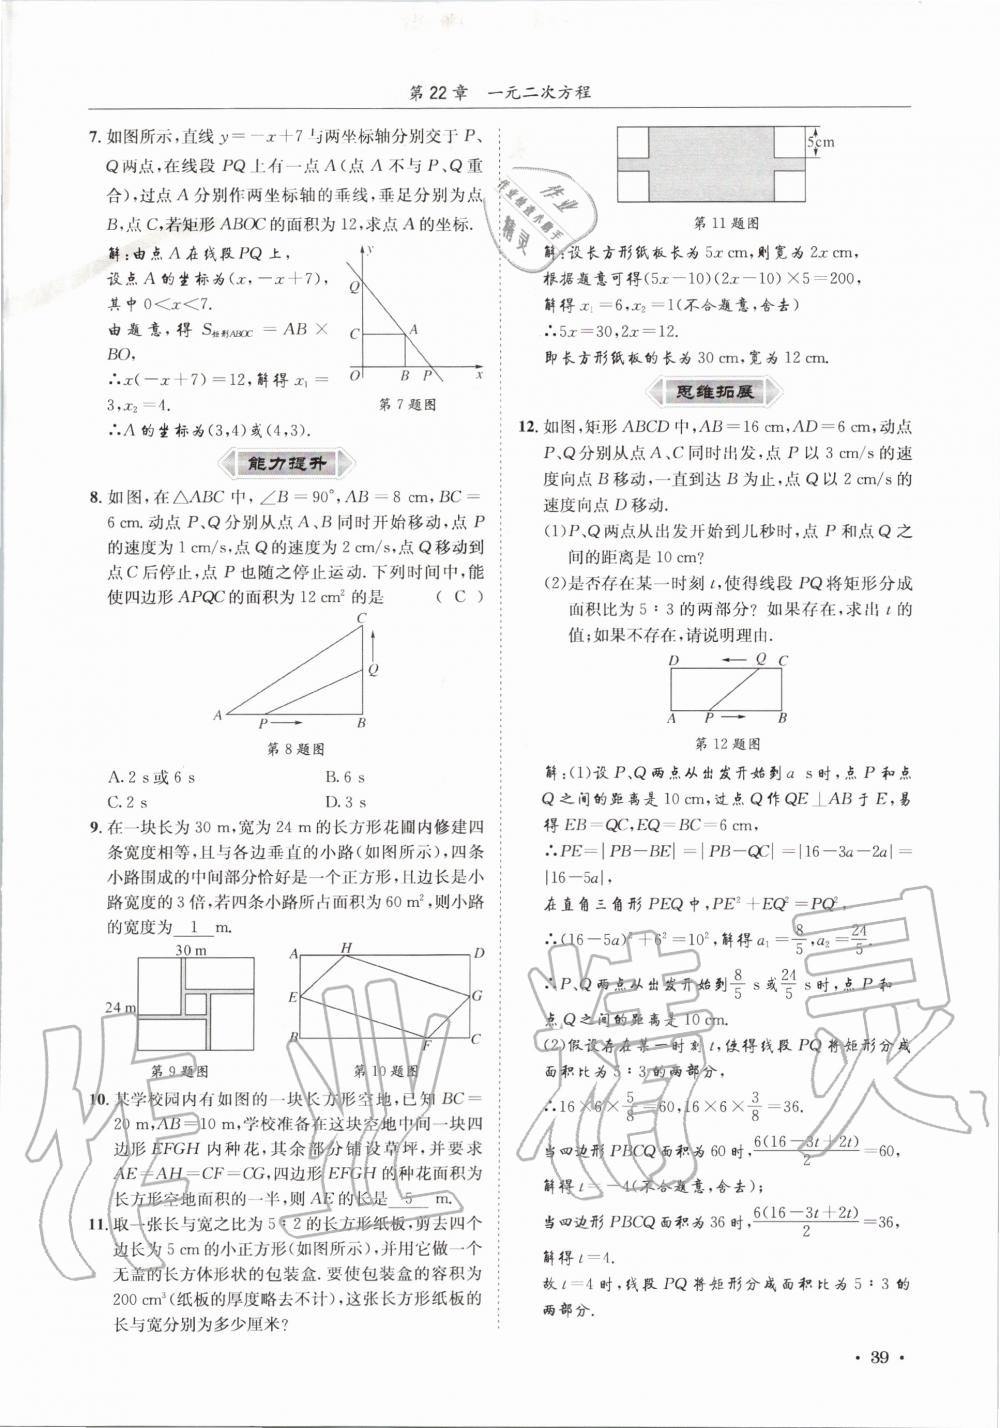 第22章 一元二次方程
7. 如图所示,直线 y=-x+7 与两坐标轴分别交于 P、
Q两点,在线段 PQ 上有一点 A(点 A 不与 P、Q 重
合),过点 A 分别作两坐标轴的垂线,垂足分别为点
B,点 C,若矩形 ABOC 的面积为 12,求点 A 的坐标.
解:由点 A 在线段 PQ 上,
设点 A 的坐标为(x,-x+7),
其中 0<x<7.
由题意,得 S矩形ABOC = AB ×
BO,
∴x(-x+7)=12,解得 x₁ =
3,x₂=4.
∴A 的坐标为(3,4)或(4,3).
y
Q
C
A
O
B
P
x
第7题图
能力提升
8. 如图,在△ABC 中,∠B=90°,AB=8 cm,BC=
6 cm.动点 P、Q 分别从点 A、B 同时开始移动,点 P
的速度为 1 cm/s,点 Q 的速度为 2 cm/s,点 Q 移动到
点 C 后停止,点 P 也随之停止运动.下列时间中,能
使四边形 APQC 的面积为 12 cm² 的是 ( C )
C
Q
A
P
B
第8题图
A. 2 s或6 s B. 6 s
C. 2 s D. 3 s
9. 在一块长为 30 m,宽为 24 m 的长方形花圃内修建四
条宽度相等,且与各边垂直的小路(如图所示),四条
小路围成的中间部分恰好是一个正方形,且边长是小
路宽度的3倍,若四条小路所占面积为 60 m²,则小路
的宽度为 1 m.
30 m
24 m
第9题图
A
H
D
E
G
B
F
C
第10题图
10. 某学校园内有如图的一块长方形空地,已知 BC=
20 m,AB=10 m,学校准备在这块空地中间一块四
边形 EFGH 内种花,其余部分铺设草坪,并要求
AE=AH=CF=CG,四边形 EFGH 的种花面积为
长方形空地面积的一半,则 AE 的长是 5 m.
11. 取一张长与宽之比为 5∶2 的长方形纸板,剪去四个
边长为 5 cm 的小正方形(如图所示),并用它做一个
无盖的长方体形状的包装盒.要使包装盒的容积为
200 cm³(纸板的厚度略去不计),这张长方形纸板的
长与宽分别为多少厘米?
5cm
第11题图
解:设长方形纸板长为 5x cm,则宽为 2x cm,
根据题意可得(5x-10)(2x-10)×5=200,
解得 x₁=6,x₂=1(不合题意,舍去)
∴5x=30,2x=12.
即长方形纸板的长为 30 cm,宽为 12 cm.
思维拓展
12. 如图,矩形 ABCD 中,AB=16 cm,AD=6 cm,动点
P、Q 分别从点 A、C 同时出发,点 P 以 3 cm/s 的速
度向点 B 移动,一直到达 B 为止,点 Q 以 2 cm/s 的
速度向点 D 移动.
(1)P、Q 两点从出发开始到几秒时,点 P 和点 Q 之
间的距离是 10 cm?
(2)是否存在某一时刻 t,使得线段 PQ 将矩形分成
面积比为 5∶3 的两部分? 如果存在,求出 t 的
值;如果不存在,请说明理由.
D
Q
C
A
P
B
第12题图
解:(1)设 P、Q 两点从出发开始到 a s时,点 P 和点
Q 之间的距离是 10 cm,过点 Q 作 QE⊥AB 于 E,易
得 EB=QC,EQ=BC=6 cm,
∴PE=|PB-BE|=|PB-QC|=|16-3a-2a|=
|16-5a|,
在直角三角形 PEQ 中,PE²+EQ²=PQ²,
∴(16-5a)²+6²=10²,解得 a₁=8/5,a₂=24/5.
∴P、Q 两点从出发开始到 8/5 s或 24/5 s时,点 P 和
点 Q 之间的距离是 10 cm.
(2)假设存在某一时刻 t,使得线段 PQ 将矩形分成
面积比为 5∶3 的两部分,
∴16×6×5/8=60,16×6×3/8=36.
当四边形 PBCQ 面积为 60 时,6(16-3t+2t)/2=60,
解得 t=-4(不合题意,舍去);
当四边形 PBCQ 面积为 36 时,6(16-3t+2t)/2=36,
解得 t=4.
故 t=4 时,线段 PQ 将矩形分成面积比为 5∶3 的
两部分.
·39·
作业
作业检查小助手
精灵
作业精灵